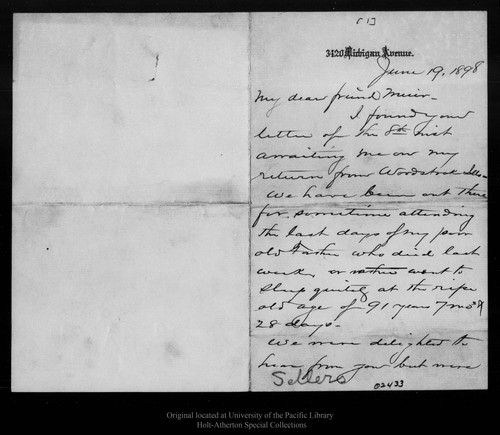 [1]
3420 Michigan Avenue.
June 19, 1898
My dear friend Muir-
I found your
letter of the 8th inst
awaiting me on my
return from Woodstock Ills-
We have been out there
for sometime attending
the last days of my poor
old Father who died last
week, or rather went to
sleep quietly at the ripe
old age of 91 years 7 mos &
28 days-
We were delighted to
hear from you but more
Sellers
02433
Original located at University of the Pacific Library
Holt-Atherton Special Collections